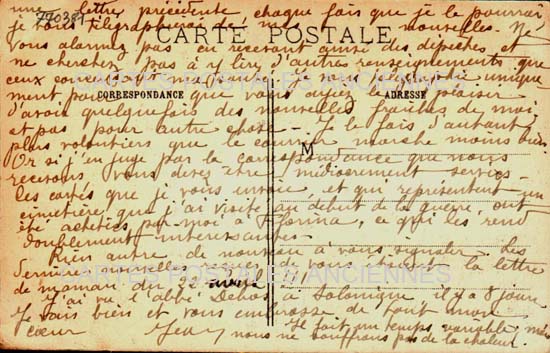 770381
une lettre précédente chaque fois que je le pourrai
je vous télégraphierai de mes nouvelles. Ne
vous alarmez pas en recevant ainsi des dépêches et
CARTE POSTALE
ne cherchez pas à y lire d'autres renseignements que
ceux
unique
CORRESPONDANCE
ADRESSE
ment parce que vous ayez le plaisir
d'avoir quelquefois des nouvelles fraîches de moi
et pas pour autre chose. Je le fais d'autant
plus volontiers que le courrier marche moins bien.
M
Or si j'en juge par la correspondance que nous
recevons vous devez être médiocrement servis.
Les cartes que je vous envoie et qui représentent un
cimetière que j'ai visité au début de la guerre, ont
été achetées par moi à Florina, ce qui les rend
doublement intéressantes.
Rien autre de nouveau à vous signaler. Les
de vous étaient la lettre
de maman du
J'ai vu l'abbé à Salonique il y a 8 jours
Je vais bien et vous embrasse de tout mon
cœur Jean
Il fait un temps variable mais
nous ne souffrons pas de la chaleur.
CARTES POSTALES ANCIENNES
CARTES POSTALES ANCIENNES